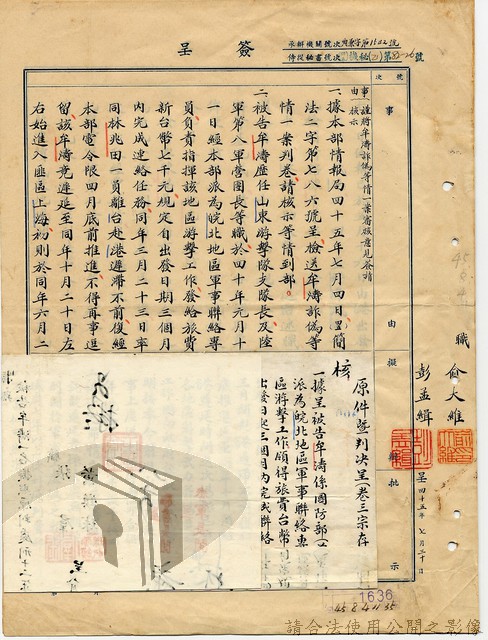 簽呈
號次
事由
擬辦
批示
事由：謹將牟濤詐偽等情一案審核意見簽請核示
一、據本部情報局四十五年七月四日(四五)簡
法二字第七八六號呈檢送牟濤詐偽等
情一案判卷請核示等情到部。
二、被告牟濤歷任山東游擊隊支隊長及陸
軍第八軍營團長等職於四十年元月十
一日經本部派為皖北地區軍事聯絡專
員負責指揮該地區游擊工作發給旅費
新台幣七千元規定自出發日期三個月
內完成連絡任務同年三月二十三日率
同林兆田一員離台赴港遲滯不前復經
本部電令限四月底前推進不得再事逗
留該牟濤竟遲延至同年十月二十日左
右始進入匪區上海初則於同年六月二
職 俞大維
彭孟緝
呈 四十五年七月三十日
原件暨判決呈(卷三宗存
核
一、據呈被告牟濤係國防部
派為皖北地區軍事聯絡專
區游擊工作領得旅費台幣
出發日起三個月內完成聯絡
1636
45.8.4
請合法使用公開之影像